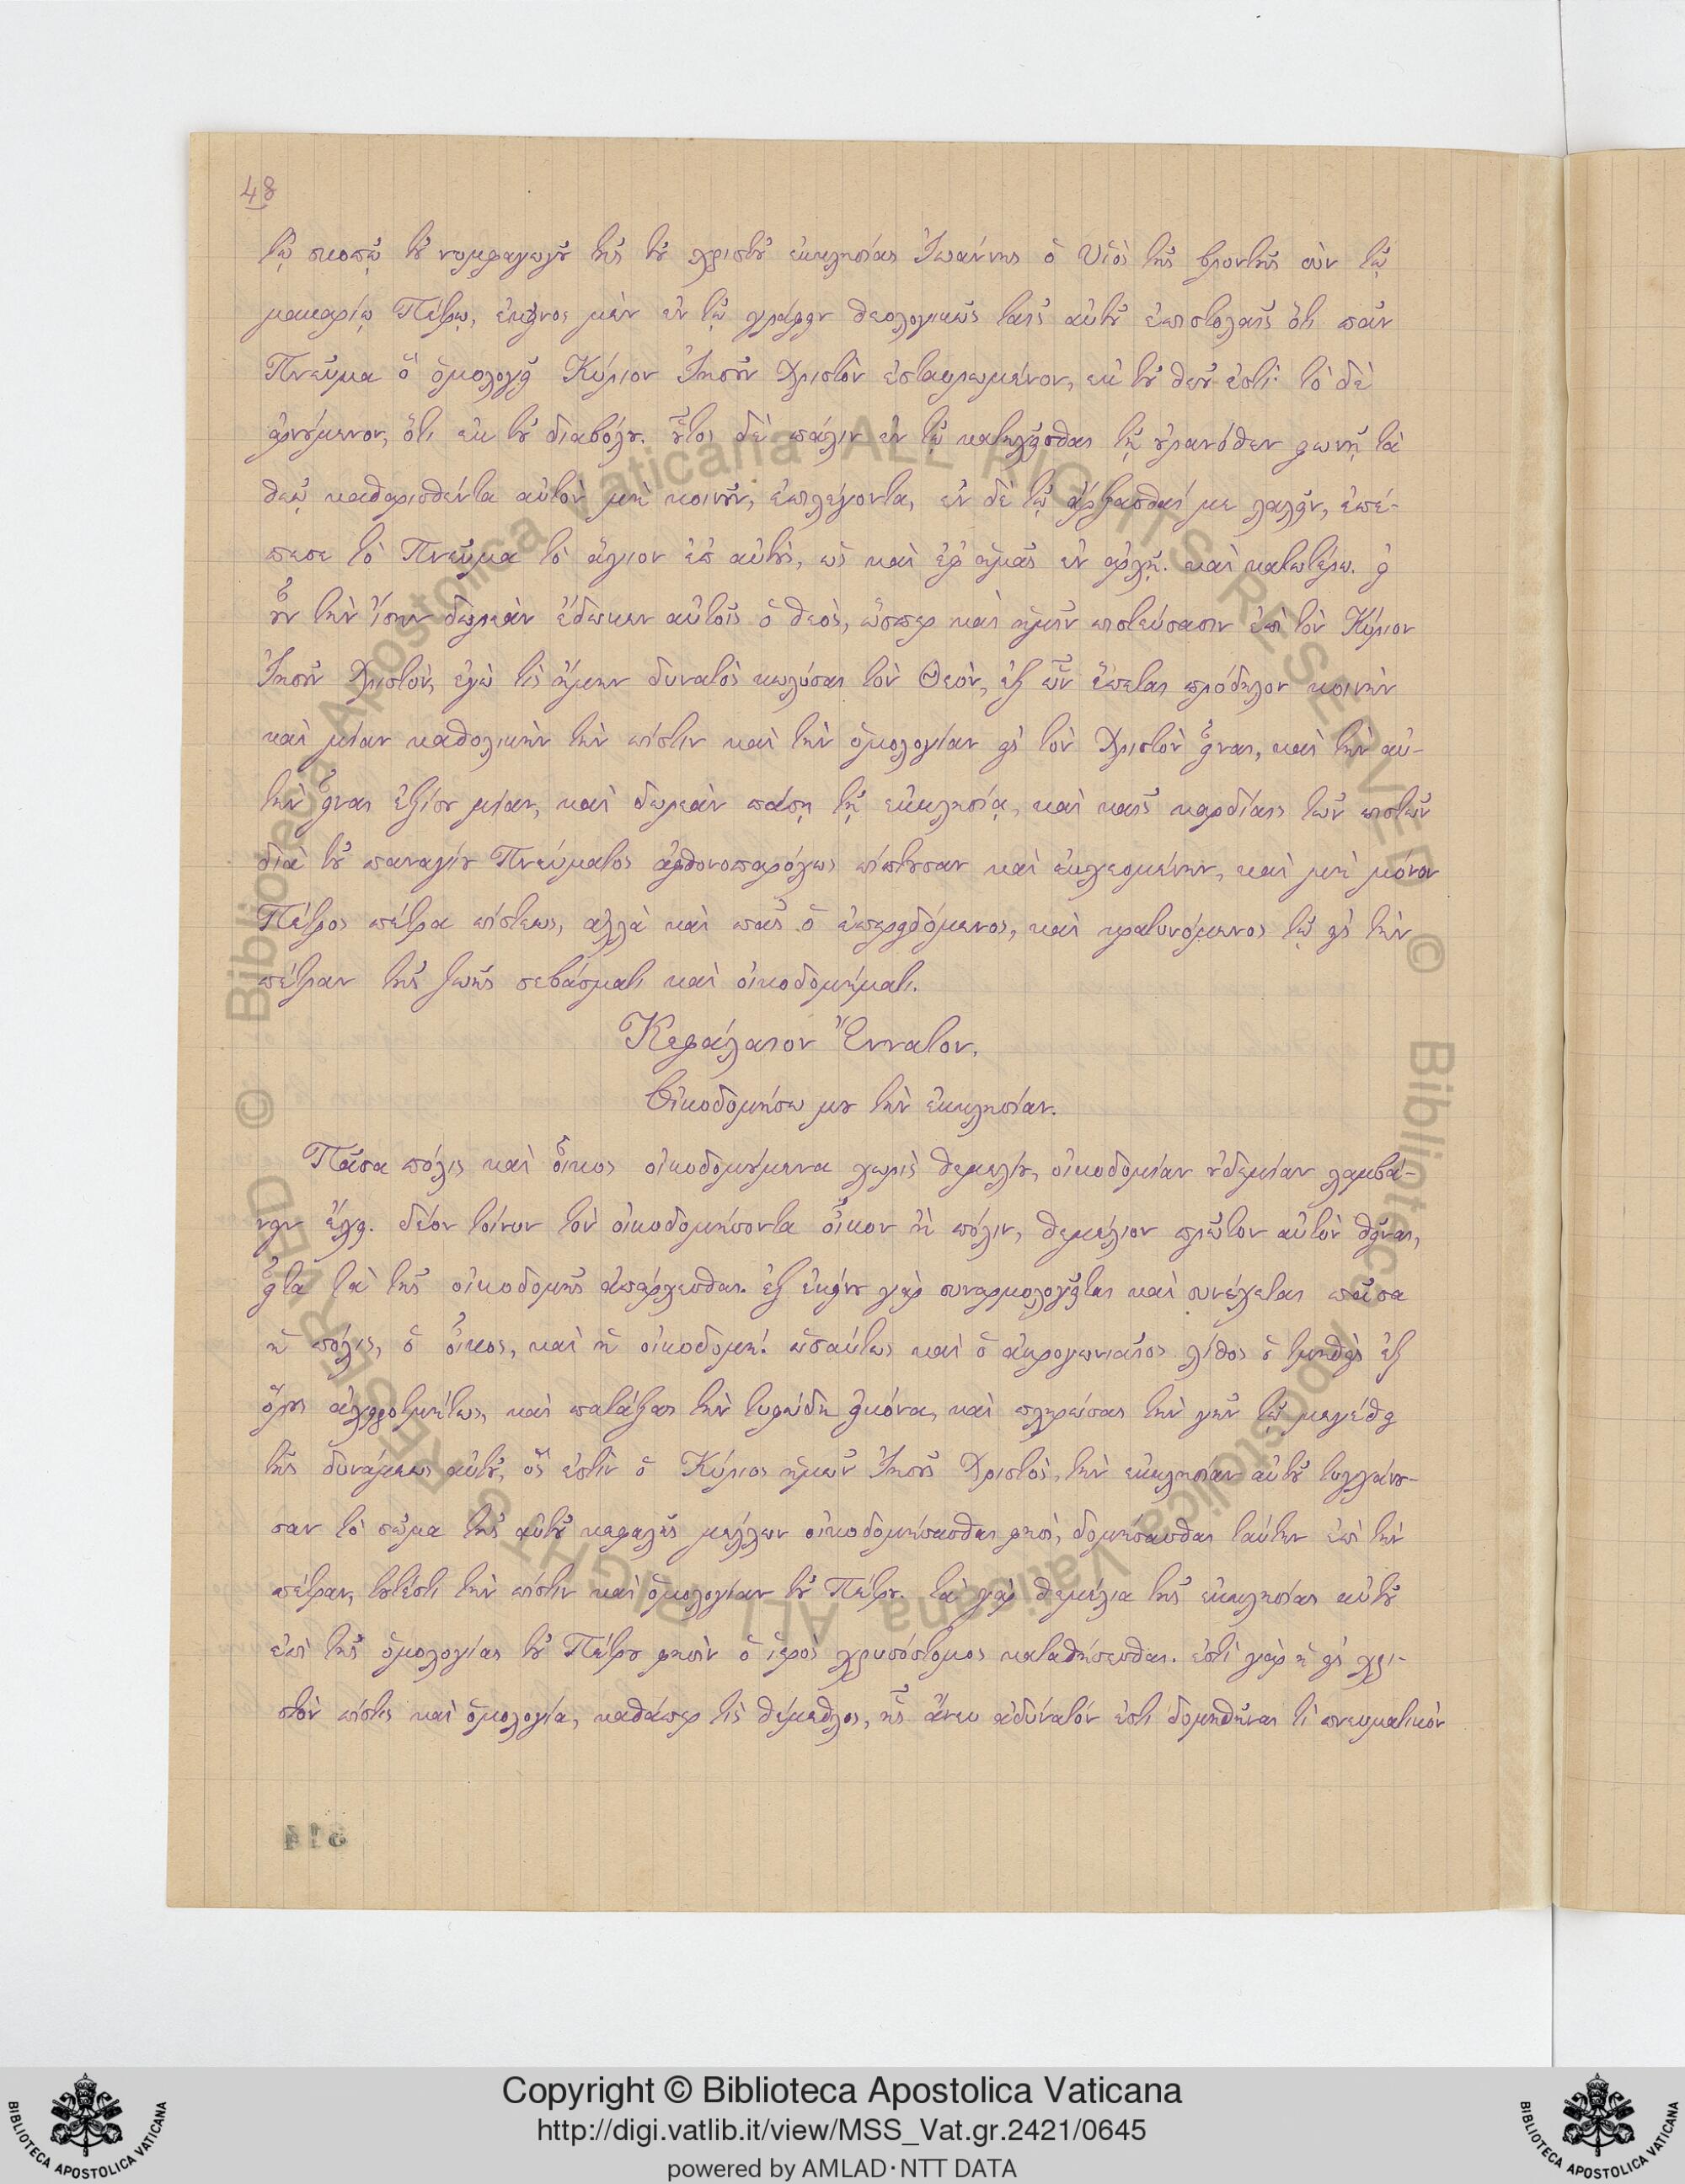 48
τῷ σκοπῷ τοῦ νυμφαγωγοῦ τῆς τοῦ χριστοῦ ἐκκλησίας Ἰωάννης ὁ Υἱὸς τῆς βροντῆς σὺν τῷ
μακαρίῳ Πέτρῳ, ἐκεῖνος μὲν ἐν τῷ γράφειν θεολογικῶς ταῖς αὐτοῦ ἐπιστολαῖς ὅτι πᾶν
Πνεῦμα ὃ ὁμολογεῖ Κύριον Ἰησοῦν Χριστὸν ἐσταυρωμένον, ἐκ τοῦ θεοῦ ἐστί· τὸ δὲ
ἀρνούμενον, ὅτι ἐκ τοῦ διαβόλου. οὗτος δὲ πάλιν ἐν τῷ κατηχεῖσθαι τῇ οὐρανόθεν φωνῇ τὰ
θεῷ καθαρισθέντα αὐτὸν μὴ κοινοῦν, ἐπιλέγοντα, ἐν δὲ τῷ ἄρξασθαί με λαλεῖν, ἐπέ-
πεσε τὸ Πνεῦμα τὸ ἅγιον ἐπ αὐτοὺς, ὡς καὶ ἐφ ἡμᾶς ἐν ἀρχῇ. καὶ κατωτέρω. εἰ
οὖν τὴν ἴσην δωρεὰν ἔδωκεν αὐτοῖς ὁ θεὸς, ὥσπερ καὶ ἡμῖν πιστεύσασιν ἐπὶ τὸν Κύριον
Ἰησοῦν Χριστὸν, ἐγὼ τὶς ἤμην δυνατὸς κωλύσαι τὸν Θεὸν, ἐξ ὧν ἕπεται πρόδηλον κοινὴν
καὶ μίαν καθολικὴν τὴν πίστιν καὶ τὴν ὁμολογίαν εἰς τὸν Χριστὸν εἶναι, καὶ τὴν αὐ-
τὴν εἶναι ἐξίσου μίαν, καὶ δωρεὰν πάσῃ τῇ ἐκκλησίᾳ, καὶ καῖς καρδίαις τῶν πιστῶν
διὰ τοῦ παναγίου Πνεύματος ἀφθονοπαρόχως πίπτουσαν καὶ ἐκχεομένην, καὶ μὴ μόνον
Πέτρος πέτρα πίστεως, ἀλλὰ καὶ πᾶς ὁ ἐπερειδόμενος, καὶ κρατυνόμενος τῷ εἰς τὴν
πέτραν τῆς ζωῆς σεβάσματι καὶ οἰκοδομήματι.
Κεφάλαιον Ἔννατον.
Οἰκοδομήσω μου τὴν ἐκκλησίαν.
Πᾶσα πόλις καὶ οἶκος οἰκοδομούμενα χωρὶς θεμελίου, οἰκοδομίαν οὐδεμίαν λαμβά-
νειν ἔχει. δέον τοίνυν τὸν οἰκοδομήσοντα οἶκον ἢ πόλιν, θεμέλιον πρῶτον αὐτὸν θεῖναι,
εἶτα τὰ τῆς οἰκοδομῆς ἀπάρχεσθαι. ἐξ ἐκείνου γὰρ συναρμολογεῖται καὶ συνέχεται πᾶσα
ἡ πόλις, ὁ οἶκος, καὶ ἡ οἰκοδομή. ὡσαύτως καὶ ὁ ἀκρογωνιαῖος λίθος ὁ τμηθεὶς ἐξ
ὄρους ἀχειροτμήτως, καὶ πατάξας τὴν τυφώδη εἰκόνα, καὶ πληρώσας τὴν γῆν τῷ μεγέθει
τῆς δυνάμεως αὐτοῦ, ὅς ἐστὶν ὁ Κύριος ἡμῶν Ἰησοῦς Χριστὸς, τὴν ἐκκλησίαν αὐτοῦ τυγχάνου-
σαν τὸ σῶμα τῆς αὐτοῦ κεφαλῆς μέλλων οἰκοδομήσασθαι φησὶ, δομήσασθαι ταύτην ἐπὶ τὴν
πέτραν, τουτέστι τὴν πίστιν καὶ ὁμολογίαν τοῦ Πέτρου. τὰ γὰρ θεμέλια τῆς ἐκκλησίας αὐτοῦ
ἐπὶ τῆς ὁμολογίας τοῦ Πέτρου φησὶν ὁ ἱερὸς χρυσόστομος καταθήσεσθαι. ἐστὶ γὰρ ἡ εἰς χρι-
στὸν πίστις καὶ ὁμολογία, καθάπερ τὶς θέμεθλος, ἧς ἄνευ ἀδύνατόν ἐστι δομηθῆναι τὶ πνευματικὸν
Copyright © Biblioteca Apostolica Vaticana
http://digi.vatlib.it/view/MSS_Vat.gr.2421/0645
powered by AMLAD·NTT DATA